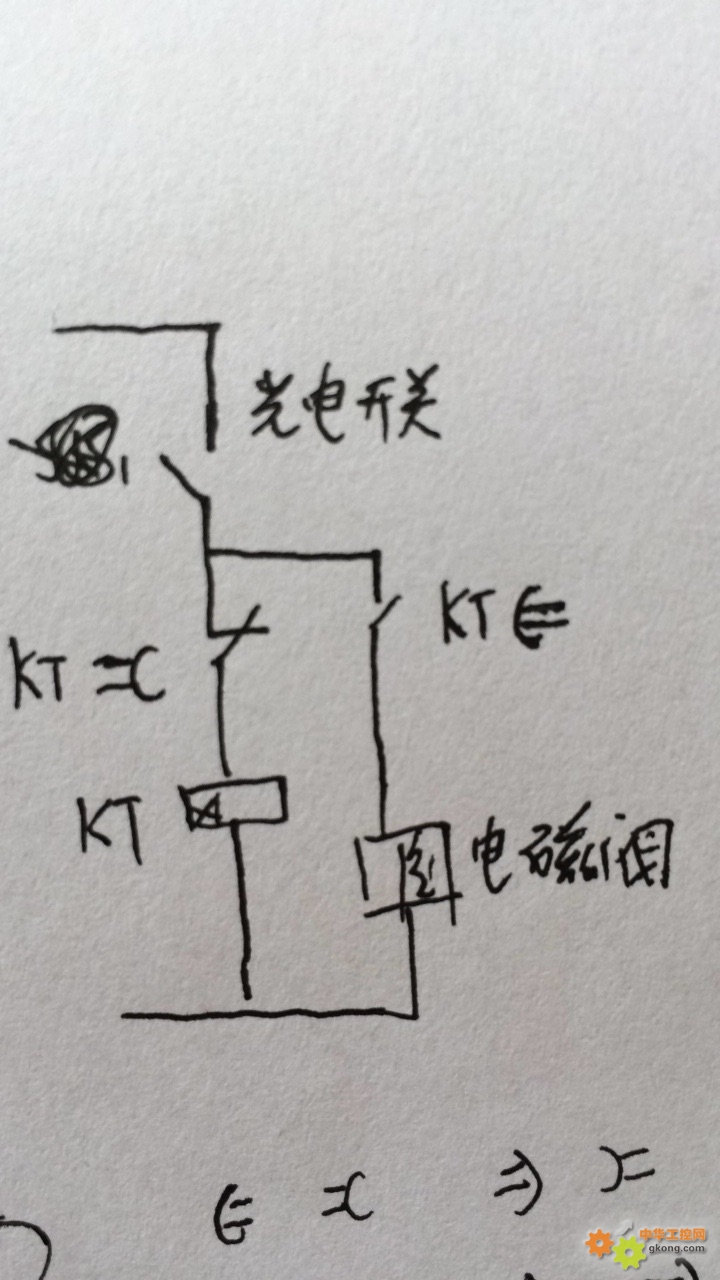 光电开关
KT
KT
KT
电磁阀
中华工控网
gkong.com